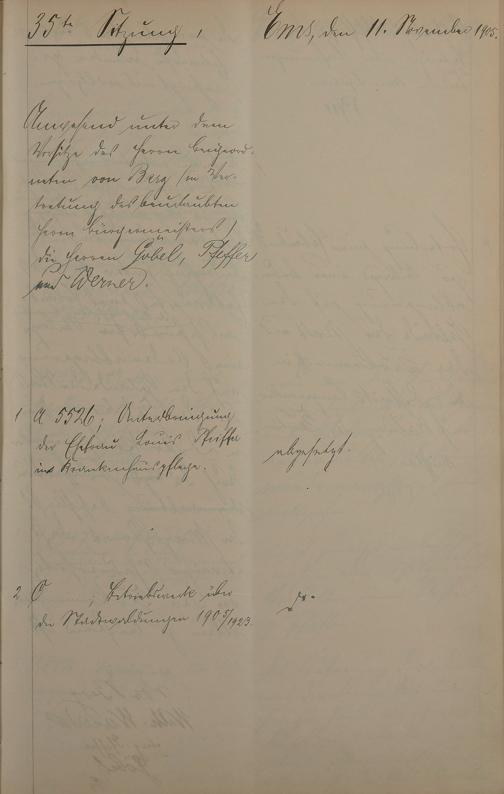 35te Sitzung,
Ems, den 11. November 1905.
Anwesend unter dem
Vorsitze des Herrn Beigeord-
neten von Berg (in Ver-
tretung des beurlaubten
Herrn Bürgermeisters)
die Herren Göbel, Pfeffer
und Werner.
1 A 5526; Unterbringung
der Ehefrau Louis
in Krankenhauspflege.
abgesetzt.
2 C ; Betriebswerk über
die Stadtwaldungen 1905/1923.
do.